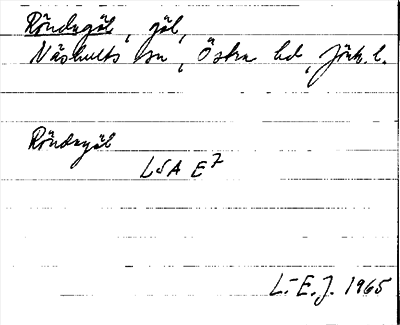 Röndagöl, göl,
Näshults sn, Östra hd, Jönk. l.
Röndagöl
LSA E7
L.-E. J. 1965